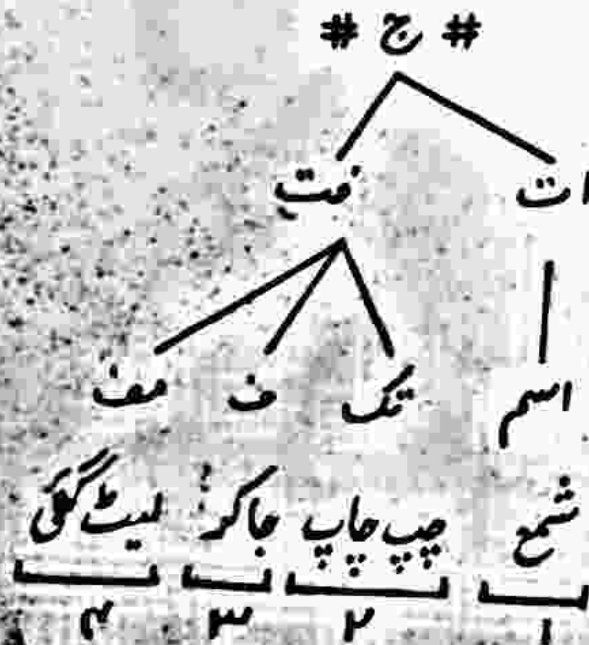 # ج #
ات فت
اسم تک ف مف
شمع چپ چاپ جاکر لیٹ گئی
۱ ۲ ۳ ۴